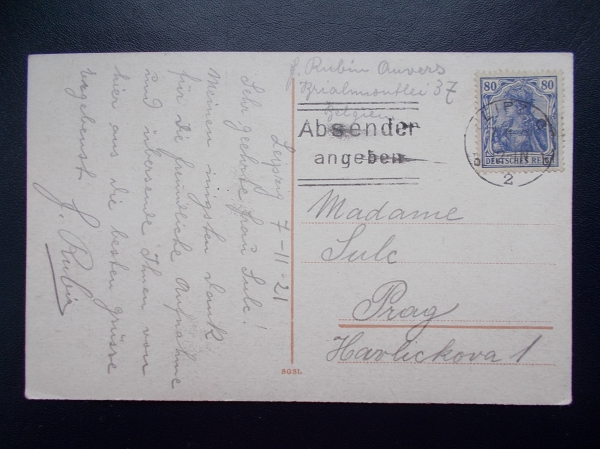 Leipzig 7-11-21
Sehr geehrte Frau Sulc!
Meinen innigsten Dank
für die freundliche Aufnahme
und übersende Ihnen von
hier aus die besten Grüsse
ergebenst
J. Rubin
J. Rubin Anvers
Brialmontlei 37
Belgien
Absender
angeben
80 80
DEUTSCHES REICH
LEIPZIG
2
Madame
Sulc
Prag
Havlickova 1